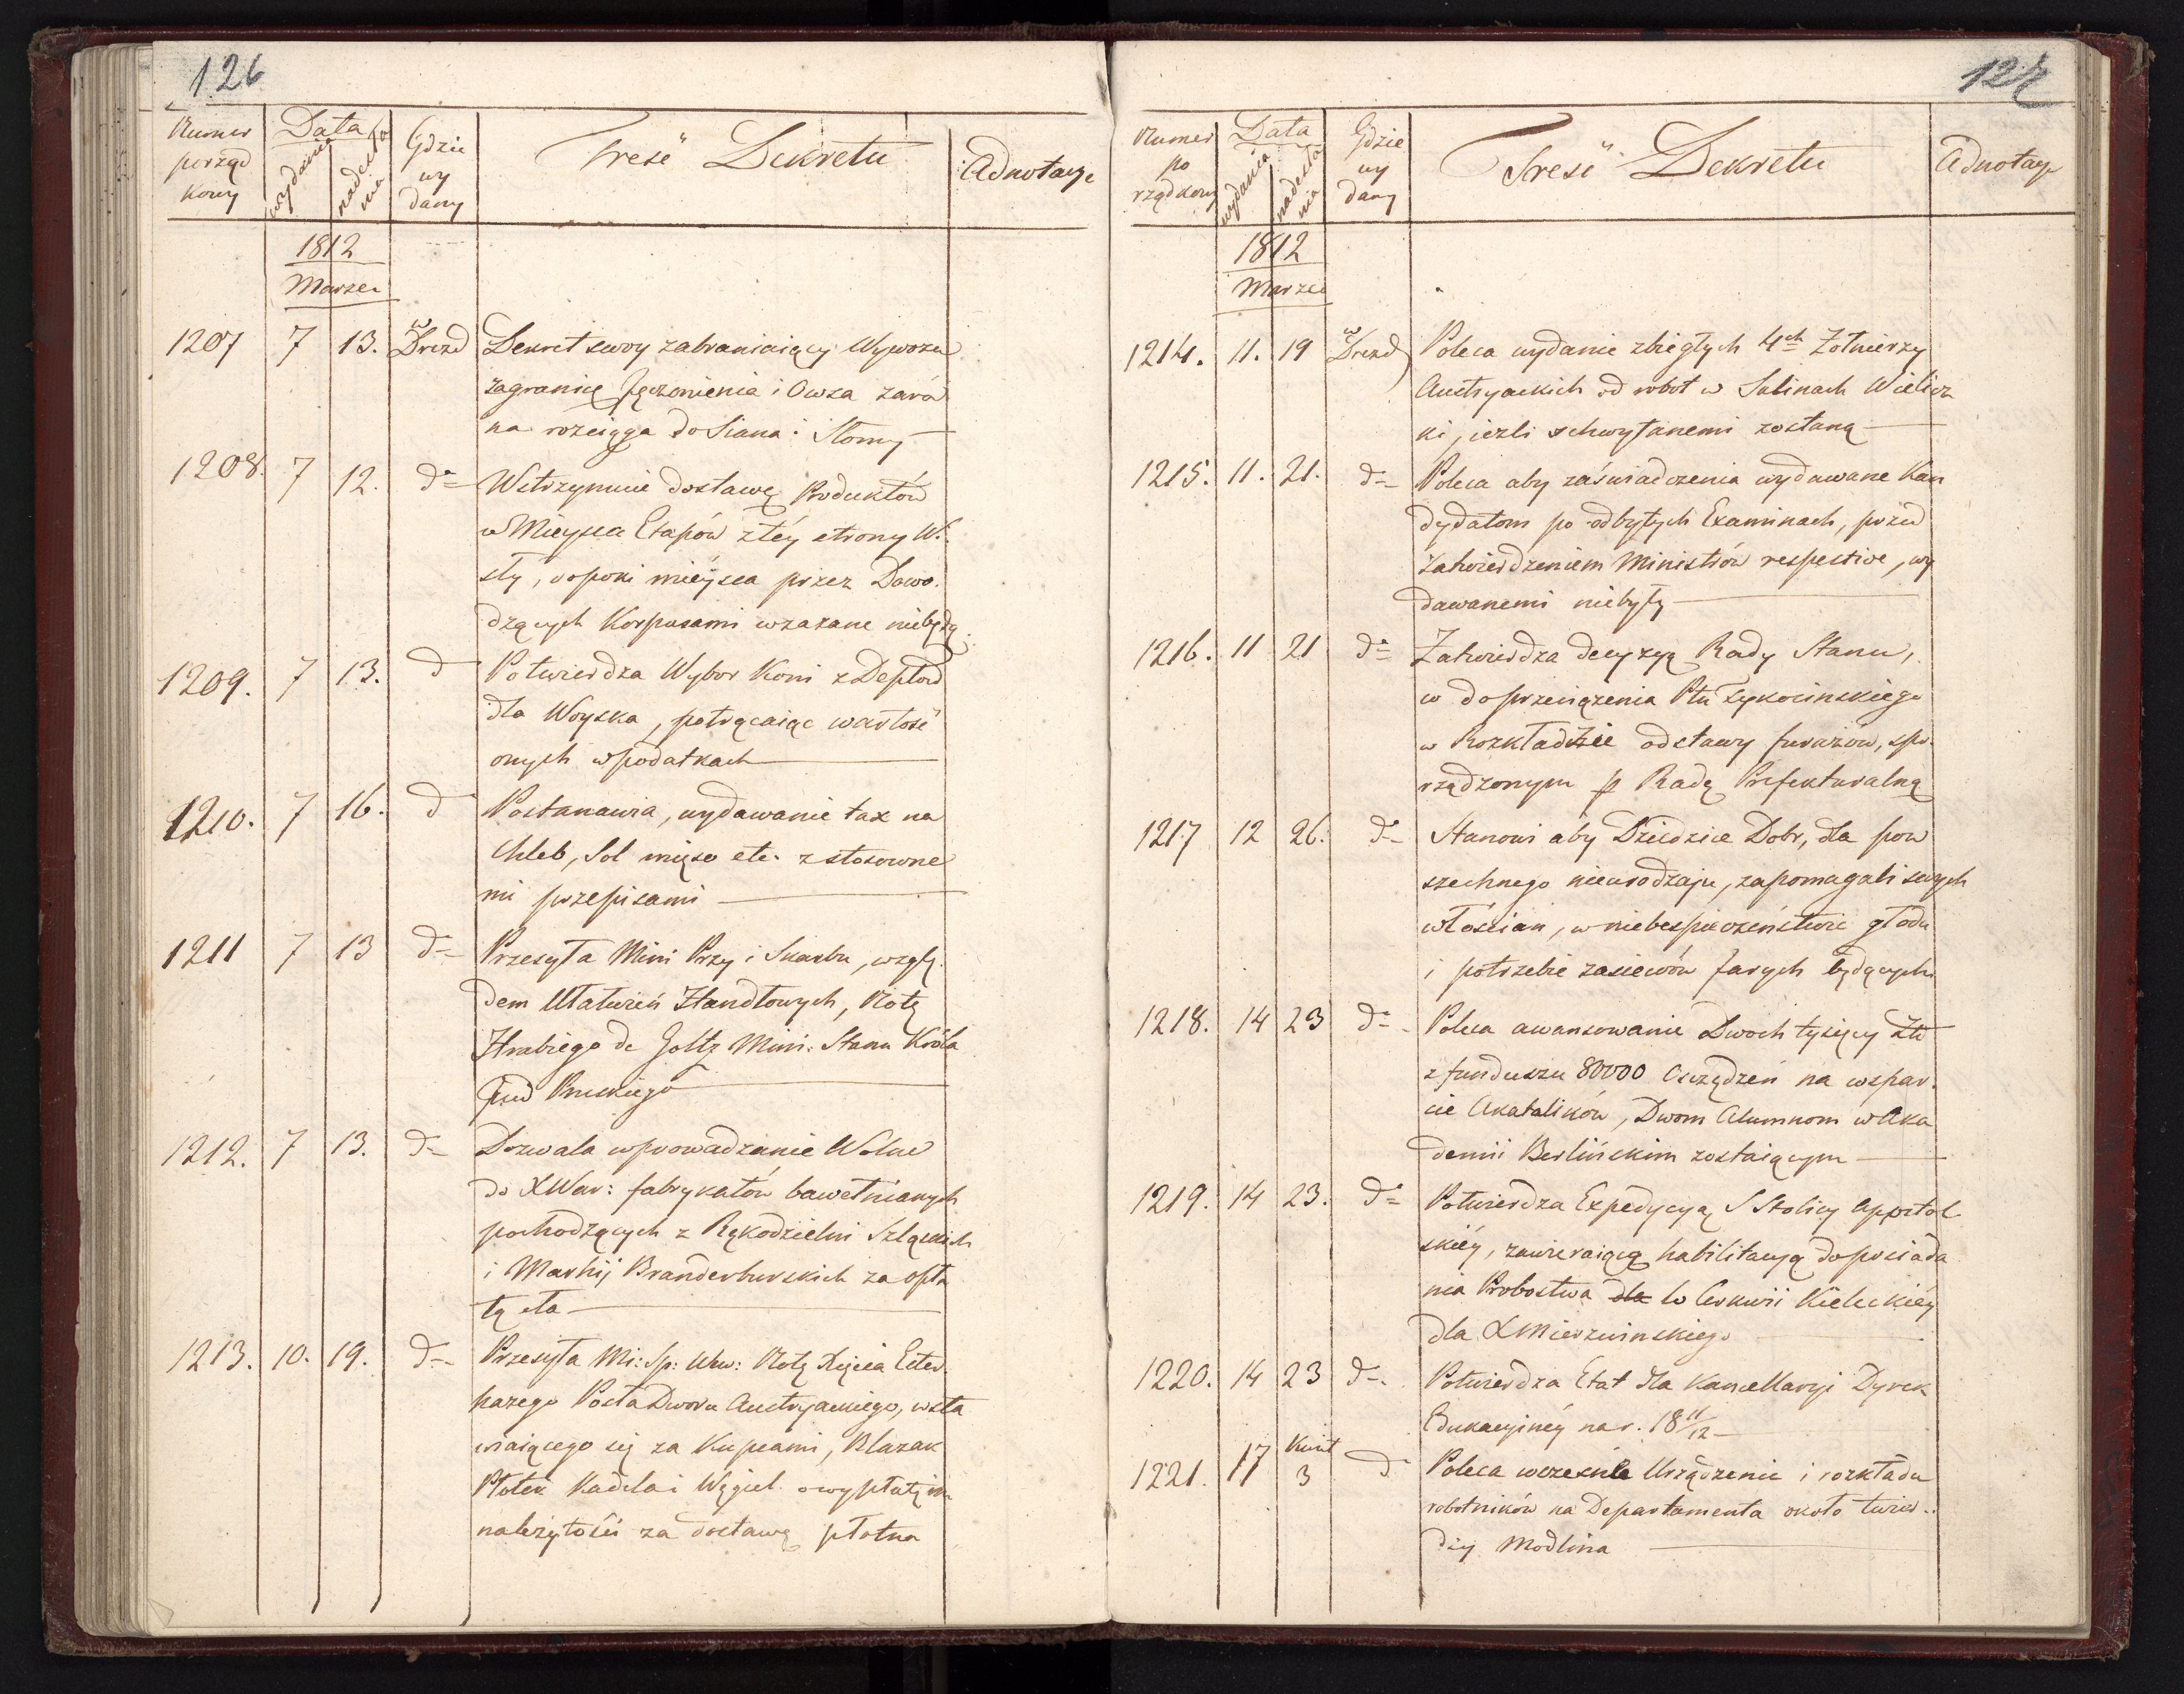 126
Numer porząd kowy | Data wydania | nadesła nia | Gdzie wy dany | Treść Dekretu | Adnotacye
1812
Marzec
1207 7 13. w Drezd Dekret swoy zabraniaiący Wywozu
zagranicę Jęczmienia i Owsa zaró
na rozciąga do Siana i Słomy
1208. 7 12. do Wstrzymuie dostawę Produktów
w Mieysca Etapów z téy strony Wi-
sły, dopoki mieysca przez Dowo-
dzących Korpusami wzazane niebędą.
1209. 7 13. d Potwierdza Wybor Koni z Deptów
dla Woyska, potrącaiąc wartość
onych w podatkach
1210. 7 16. d Postanawia, wydawanie tax na
Chleb, Sol mięso etc. z stosowne
mi przepisami
1211 7 13 do Przesyła Mini Przy i Skarbu, wzglę-
dem Ułatwień Handlowych, Notę
Hrabiego de Goltz Mini: Stanu Króla
Jmci Pruskiego
1212. 7 13. do Dozwala wprowadzanie Wolne
do XWar: fabrykatów bawełnianych
pochodzących z Rękodzielni Szląskich
i Marhij Branderburskich za opła
tą cła
1213. 10. 19. do Przesyła Mi: Sp: Wew: Notę Xięcia Ester-
hazego Posła Dworu Austryackiego, wsta
wiaiącego się za Kupcami, Blazak
Płotek Kadela i Węgiel o wypłatę im
należytości za dostawę płotna
127
Numer po rządkowy | Data wydania | nadesła nia | Gdzie wy dany | Treść Dekretu | Adnotacye
1812
Marzec
1214. 11. 19 w Drezd Poleca wydanie zbiegłych 4ch Żołnierzy
Austryackich od robot w Salinach Wielicz
ki, ieżli schwytanemi zostaną
1215. 11. 21. do Poleca aby zaświadczenia wydawane Kan
dydatom po odbytych Examinach, przed
zatwierdzeniem Ministrów respective, wy
dawanemi niebyły
1216. 11 21 do Zatwierdza decyzyą Rady Stanu,
w do przeciążenia Ptu Tykocinskiego
w Rozkładzie odstawy furażów, spo-
rządzonym p Radę Prefekturalną
1217 12 26. do Stanowi aby Dziedzice Dobr, dla pow
szechnego nieurodzaju, zapomagali swych
włościan, w niebespieczeństwie głodu
i potrzebie zasiewów Jarych będących
1218. 14 23 do Poleca awansowanie Dwoch tysięcy Zło
z funduszu 80000 Oszędzeń na wspar-
cie Akatolików, Dwom Alumnom w Aka
demii Berlińskim zostaiącym
1219. 14 23. do Potwierdza Expedycyą S Stolicy Apostol-
skiéy, zawieraiącą habilitacyą do posiada
nia Probostwa dla w Cerkwii Kieleckiéy
dla X Mierzwinskiego
1220. 14 23 do Potwierdza Etat dla Kancellaryi Dyrek
Edukacyinéy na r. 18 11/12
1221. 17 Kwiet 3 d Poleca wczesne Urządzenie i rozkładu
robotników na Departamenta około twier-
dzy Modlina